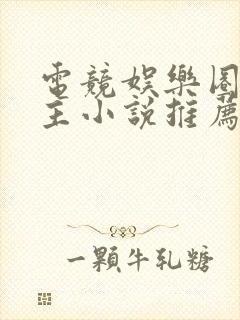 電競娛樂圈
主小說推薦
一顆牛乳糖